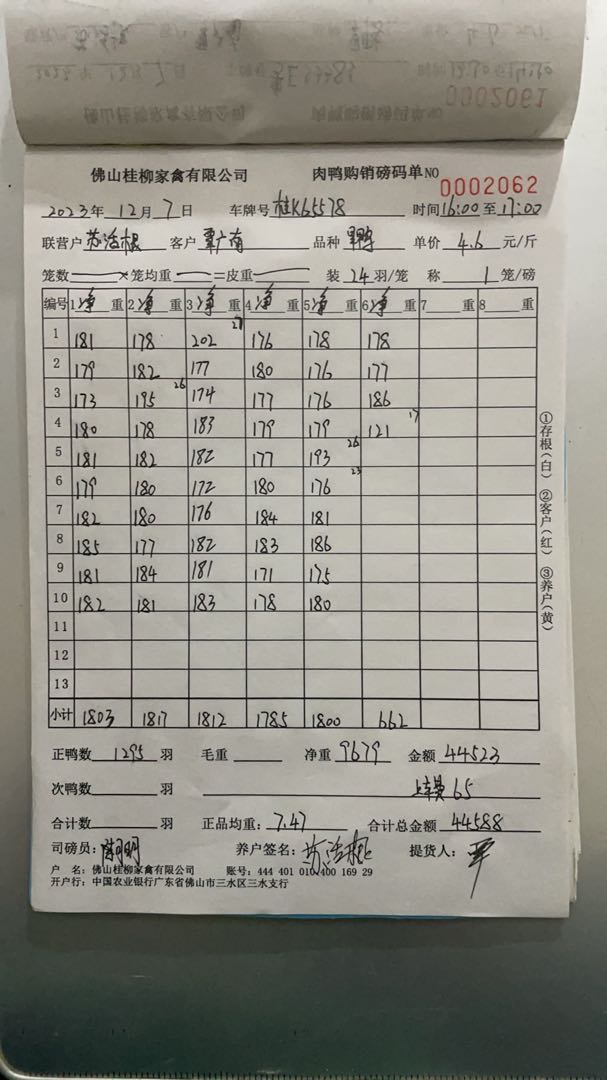 0002061
佛山桂柳家禽有限公司 肉鸭购销磅码单NO 0002062
2023年 12月 7日 车牌号 桂K65578 时间16:00至17:00
联营户 苏活根 客户 覃广南 品种 单价 4.6 元/斤
笼数 ×笼均重 =皮重 装 24 羽/笼 称 1 笼/磅
编号 1 净 重 2 净 重 3 净 重 4 净 重 5 净 重 6 净 重 7 重 8 重
1 181 178 202 27 176 178 178
2 179 182 177 180 176 177
3 173 195 26 174 177 176 186
4 180 178 183 179 179 121 17
5 181 182 182 177 193 26
6 179 180 172 180 176 23
7 182 180 176 184 181
8 185 177 182 183 186
9 181 184 181 171 175
10 182 181 183 178 180
11
12
13
小计 1803 1817 1812 1785 1800 662
正鸭数 1295 羽 毛重 净重 9679 金额 44523
次鸭数 羽 上车费 65
合计数 羽 正品均重: 7.47 合计总金额 44588
司磅员: 养户签名: 苏活根 提货人:
户 名: 佛山桂柳家禽有限公司 账号: 444 401 010 400 169 29
开户行: 中国农业银行广东省佛山市三水区三水支行
①存根(白) ②客户(红) ③养户(黄)